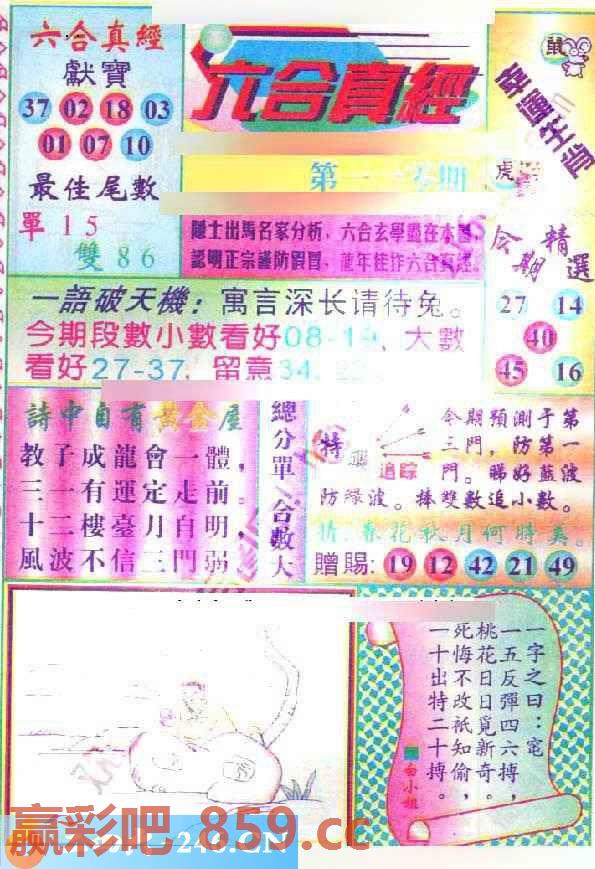 六合真經
獻寶
37 02 18 03
01 07 10
最佳尾數
單15
雙86
六合真經
鼠
幸運生肖
虎
隱士出馬名家分析，六合玄學盡在本書，
認明正宗謹防假冒，龍年佳作六合真經。
今期精選
27 14
40
45 16
一語破天機：寓言深长请待兔。
今期段數小數看好08-19、大數
看好27-37，留意34
詩中自有黃金屋
教子成龍會一體，
三一有運定走前。
十二樓臺月自明，
風波不信三門弱
總分單 合數大
特
追踪
今期預測于第
三門，防第一
門。睇好藍波
防綠波。捧雙數追小數。
猜：春花秋月何時美。
贈賜：19 12 42 21 49
一字之曰：竃
一五反彈四六搏，
桃花日日覓新奇。
死悔不改祇知偷，
一十出特二十搏。
白小姐
赢彩吧 859.cc
246.CN